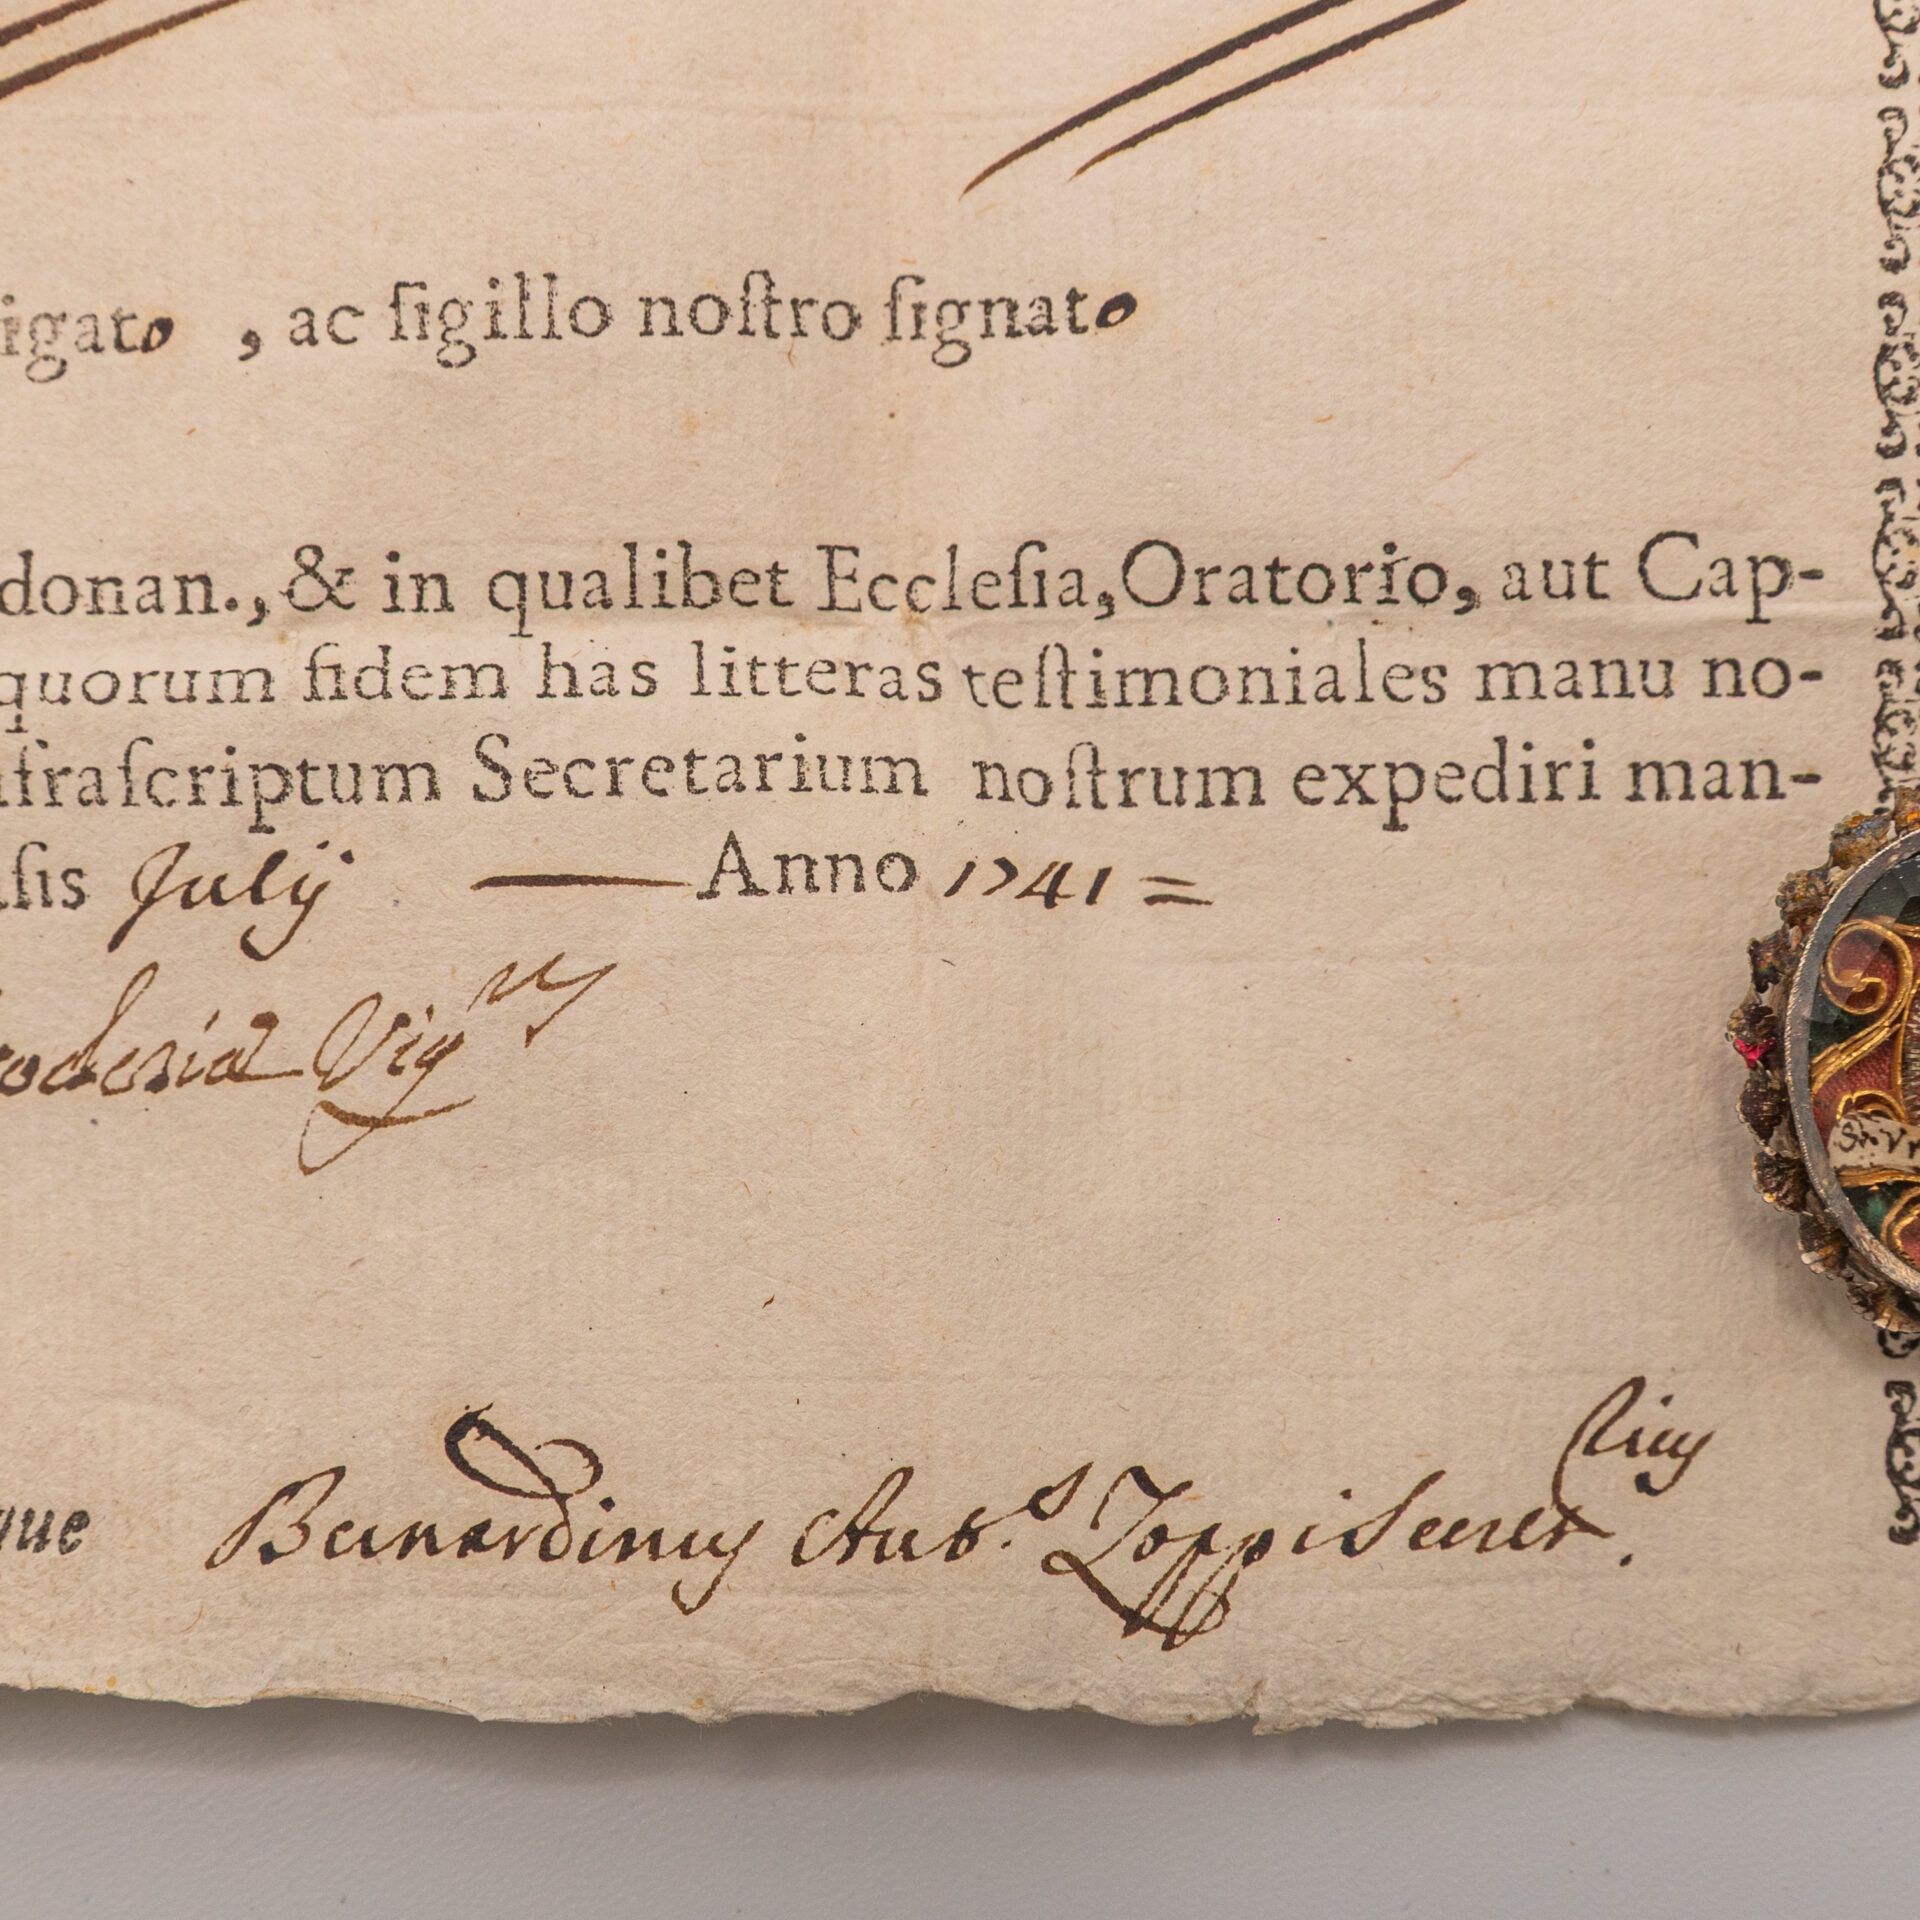 igato , ac ſigillo noſtro ſignato
donan., & in qualibet Eccleſia, Oratorio, aut Cap-
quorum fidem has litteras teſtimoniales manu no-
fraſcriptum Secretarium noſtrum expediri man-
ſis Julij — Anno 1741 =
Vig
que Bernardinus Zoppi Secret.